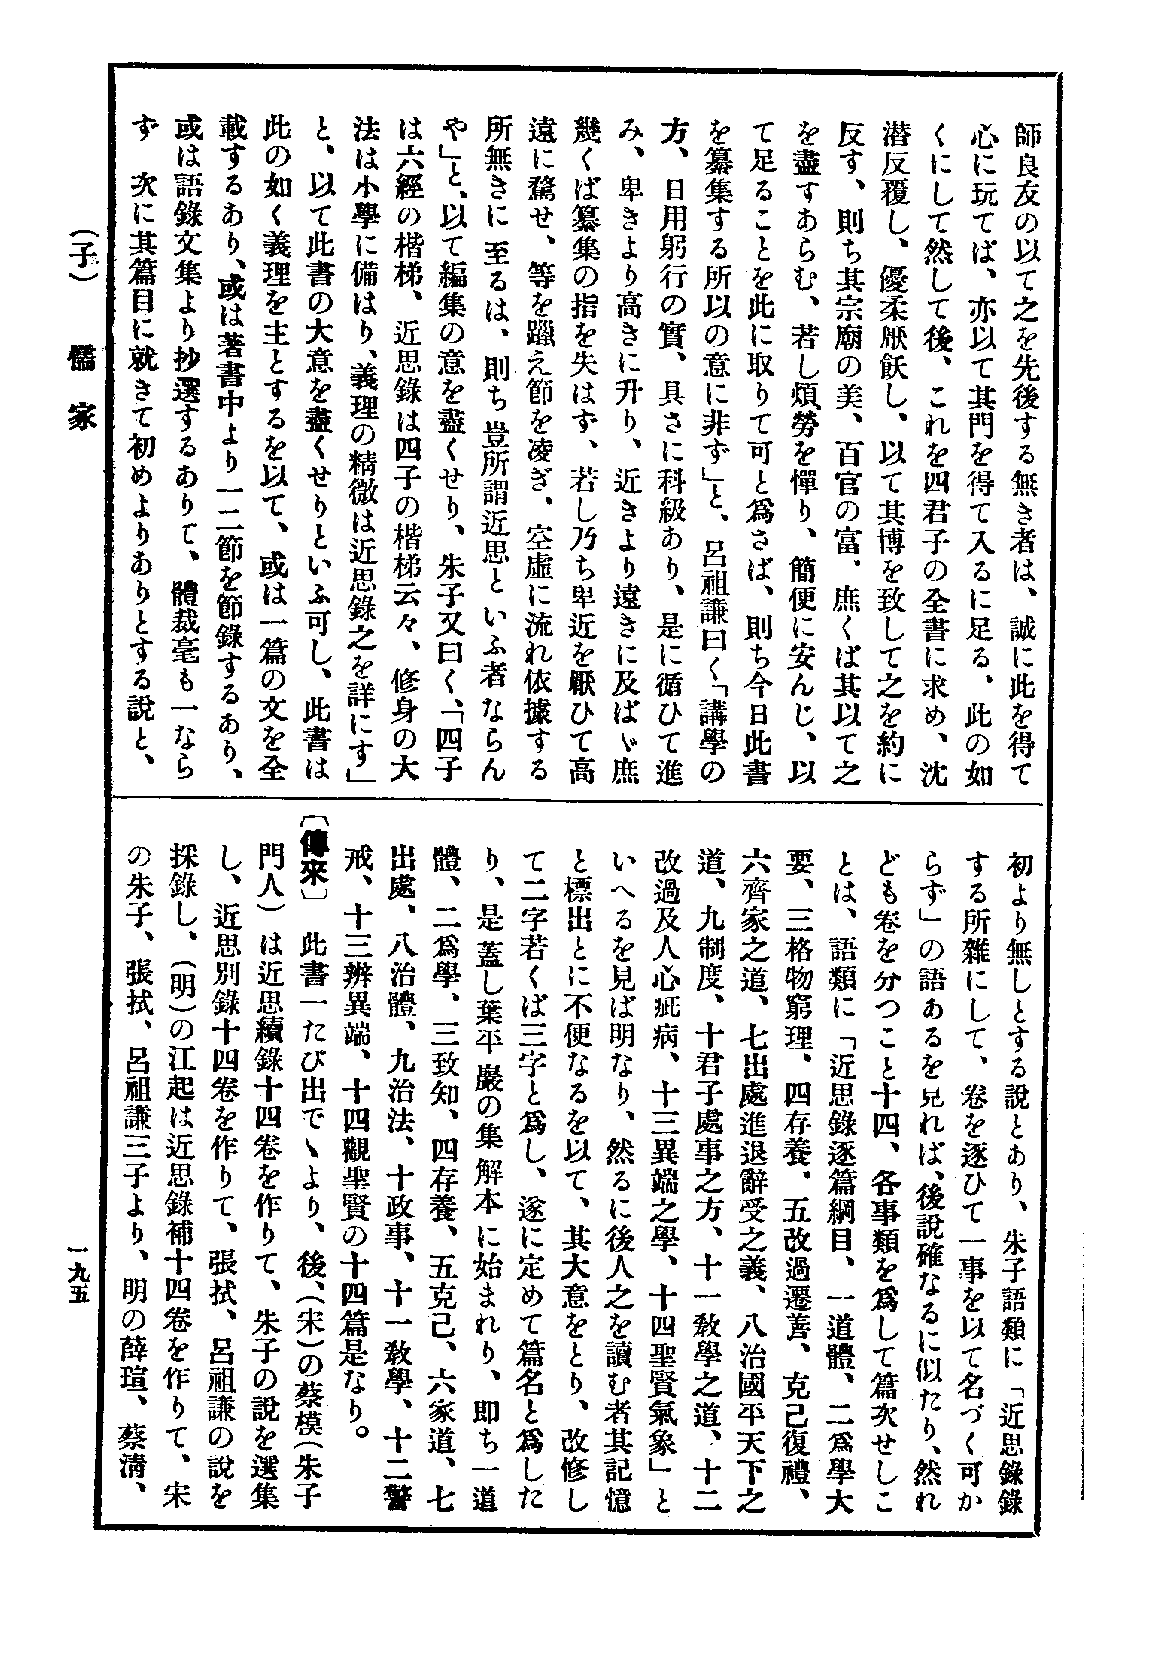 師良友の以て之を先後する無き者は、誠に此を得て
心に玩てば、亦以て其門を得て入るに足る、此の如
くにして然して後、これを四君子の全書に求め、沈
潜反覆し、優柔厭飫し、以て其博を致して之を約に
反す、則ち其宗廟の美、百官の富、庶くば其以て之
を盡すあらむ、若し煩勞を憚り、簡便に安んじ、以
て足ることを此に取りて可と爲さば、則ち今日此書
を纂集する所以の意に非ず」と、呂祖謙曰く、「講學の
方、日用躬行の實、具さに科級あり、是に循ひて進
み、卑きより高きに升り、近きより遠きに及ばゞ庶
幾くば纂集の指を失はず、若し乃ち卑近を厭ひて高
遠に騖せ、等を躐え節を凌ぎ、空虛に流れ依據する
所無きに至るは、則ち豈所謂近思といふ者ならん
や」と、以て編集の意を盡くせり、朱子又曰く、「四子
は六經の楷梯、近思錄は四子の楷梯云々、修身の大
法は小學に備はり、義理の精微は近思錄之を詳にす」
と、以て此書の大意を盡くせりといふ可し、此書は
此の如く義理を主とするを以て、或は一篇の文を全
載するあり、或は著書中より一二節を節錄するあり、
或は語錄文集より抄選するありて、體裁毫も一なら
ず　次に其篇目に就きて初めよりありとする說と、
初より無しとする說とあり、朱子語類に「近思錄錄
する所雜にして、卷を逐ひて一事を以て名づく可か
らず」の語あるを見れば、後說確なるに似たり、然れ
ども卷を分つこと十四、各事類を爲して篇次せしこ
とは、語類に「近思錄逐篇綱目、一道體、二爲學大
要、三格物窮理、四存養、五改過遷善、克己復禮、
六齊家之道、七出處進退辭受之義、八治國平天下之
道、九制度、十君子處事之方、十一敎學之道、十二
改過及人心疵病、十三異端之學、十四聖賢氣象」と
いへるを見ば明なり、然るに後人之を讀む者其記憶
と標出とに不便なるを以て、其大意をとり、改修し
て二字若くば三字と爲し、遂に定めて篇名と爲した
り、是蓋し葉平巖の集解本に始まれり、即ち一道
體、二爲學、三致知、四存養、五克己、六家道、七
出處、八治體、九治法、十政事、十一敎學、十二警
戒、十三辨異端、十四觀聖賢の十四篇是なり。
〔傳來〕　此書一たび出でゝより、後、(宋)の蔡模(朱子
門人）は近思續錄十四卷を作りて、朱子の說を選集
し、近思別錄十四卷を作りて、張拭、呂祖謙の說を
採錄し、(明)の江起は近思錄補十四卷を作りて、宋
の朱子、張拭、呂祖謙三子より、明の薛瑄、蔡淸、
（子）　儒　家
一九五